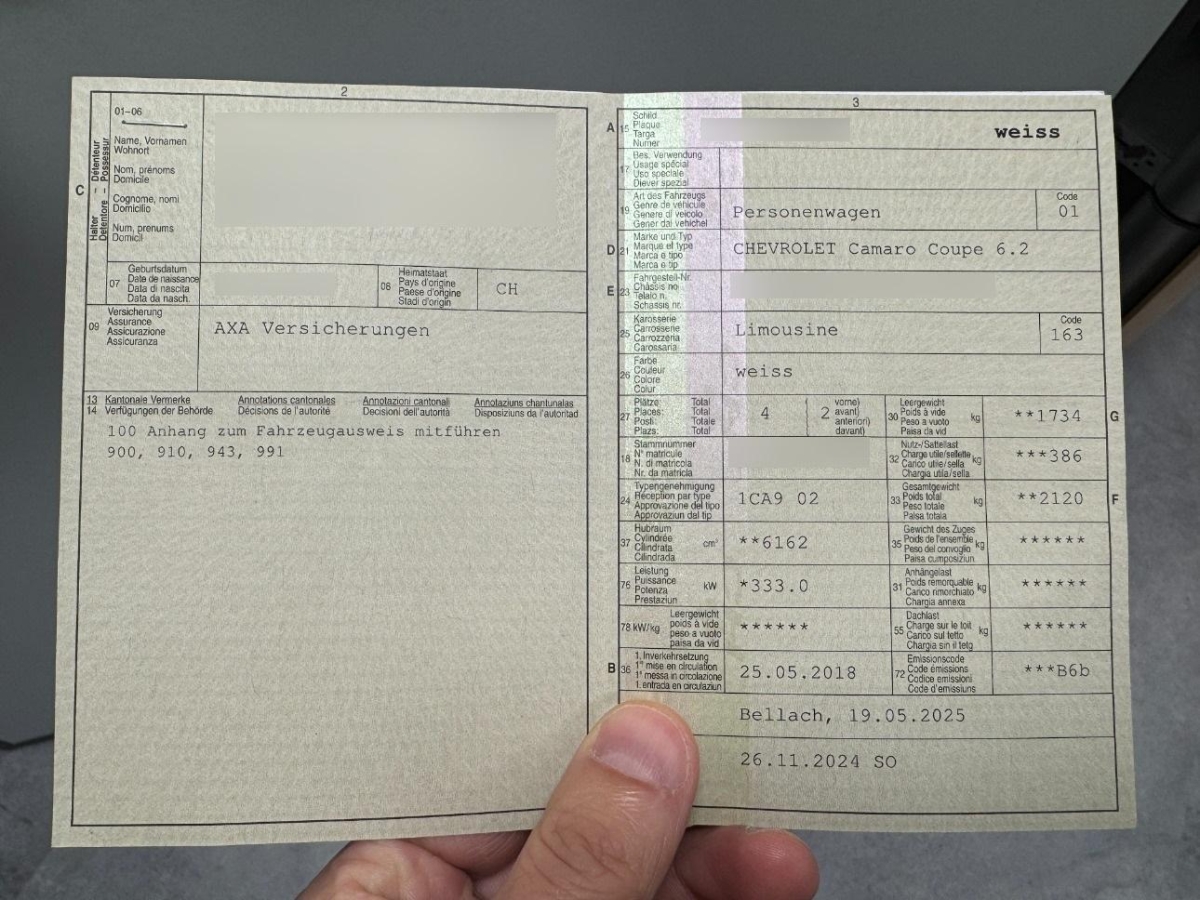 2
01-06
Halter – Détenteur
Detentore – Possessur
C
Name, Vornamen
Wohnort
Nom, prénoms
Domicile
Cognome, nomi
Domicilio
Num, prenums
Domicil
07
Geburtsdatum
Date de naissance
Data di nascita
Data da nasch.
06
Heimatstaat
Pays d'origine
Paese d'origine
Stadi d'origin
CH
09
Versicherung
Assurance
Assicurazione
Assicuranza
AXA Versicherungen
13 Kantonale Vermerke Annotations cantonales Annotazioni cantonali Annotaziuns chantunalas
14 Verfügungen der Behörde Décisions de l'autorité Decisioni dell'autorità Disposiziuns da l'autoritad
100 Anhang zum Fahrzeugausweis mitführen
900, 910, 943, 991
3
A 15
Schild
Plaque
Targa
Numer
weiss
17
Bes. Verwendung
Usage spécial
Uso speciale
Diever spezial
19
Art des Fahrzeugs
Genre de véhicule
Genere di veicolo
Gener dal vehichel
Personenwagen
Code
01
D 21
Marke und Typ
Marque et type
Marca e tipo
Marca e tip
CHEVROLET Camaro Coupe 6.2
E 23
Fahrgestell-Nr.
Châssis no
Telaio n.
Schassis nr.
25
Karosserie
Carrosserie
Carrozzeria
Carossaria
Limousine
Code
163
26
Farbe
Couleur
Colore
Colur
weiss
27
Plätze Total
Places: Total
Posti: Totale
Plazs: Total
4
2
vorne)
avant)
anteriori)
davant)
30
Leergewicht
Poids à vide
Peso a vuoto
Paisa da vid
kg
**1734
G
18
Stammnummer
N° matricule
N. di matricola
Nr. da matricla
32
Nutz-/Sattellast
Charge utile/sellette
Carico utile/sella
Chargia utila/sella
kg
***386
24
Typengenehmigung
Réception par type
Approvazione del tipo
Approvaziun dal tip
1CA9 02
33
Gesamtgewicht
Poids total
Peso totale
Paisa totala
kg
**2120
F
37
Hubraum
Cylindrée
Cilindrata
Cilindrada
cm³
**6162
35
Gewicht des Zuges
Poids de l'ensemble
Peso del convoglio
Paisa cumposiziun
kg
******
76
Leistung
Puissance
Potenza
Prestaziun
kW
*333.0
31
Anhängelast
Poids remorquable
Carico rimorchiato
Chargia annexa
kg
******
78 kW/kg
Leergewicht
poids à vide
peso a vuoto
paisa da vid
******
55
Dachlast
Charge sur le toit
Carico sul tetto
Chargia sin il tetg
kg
******
B 36
1. Inverkehrsetzung
1re mise en circulation
1a messa in circolazione
1. entrada en circulaziun
25.05.2018
72
Emissionscode
Code émissions
Codice emissioni
Code d'emissiuns
***B6b
Bellach, 19.05.2025
26.11.2024 SO